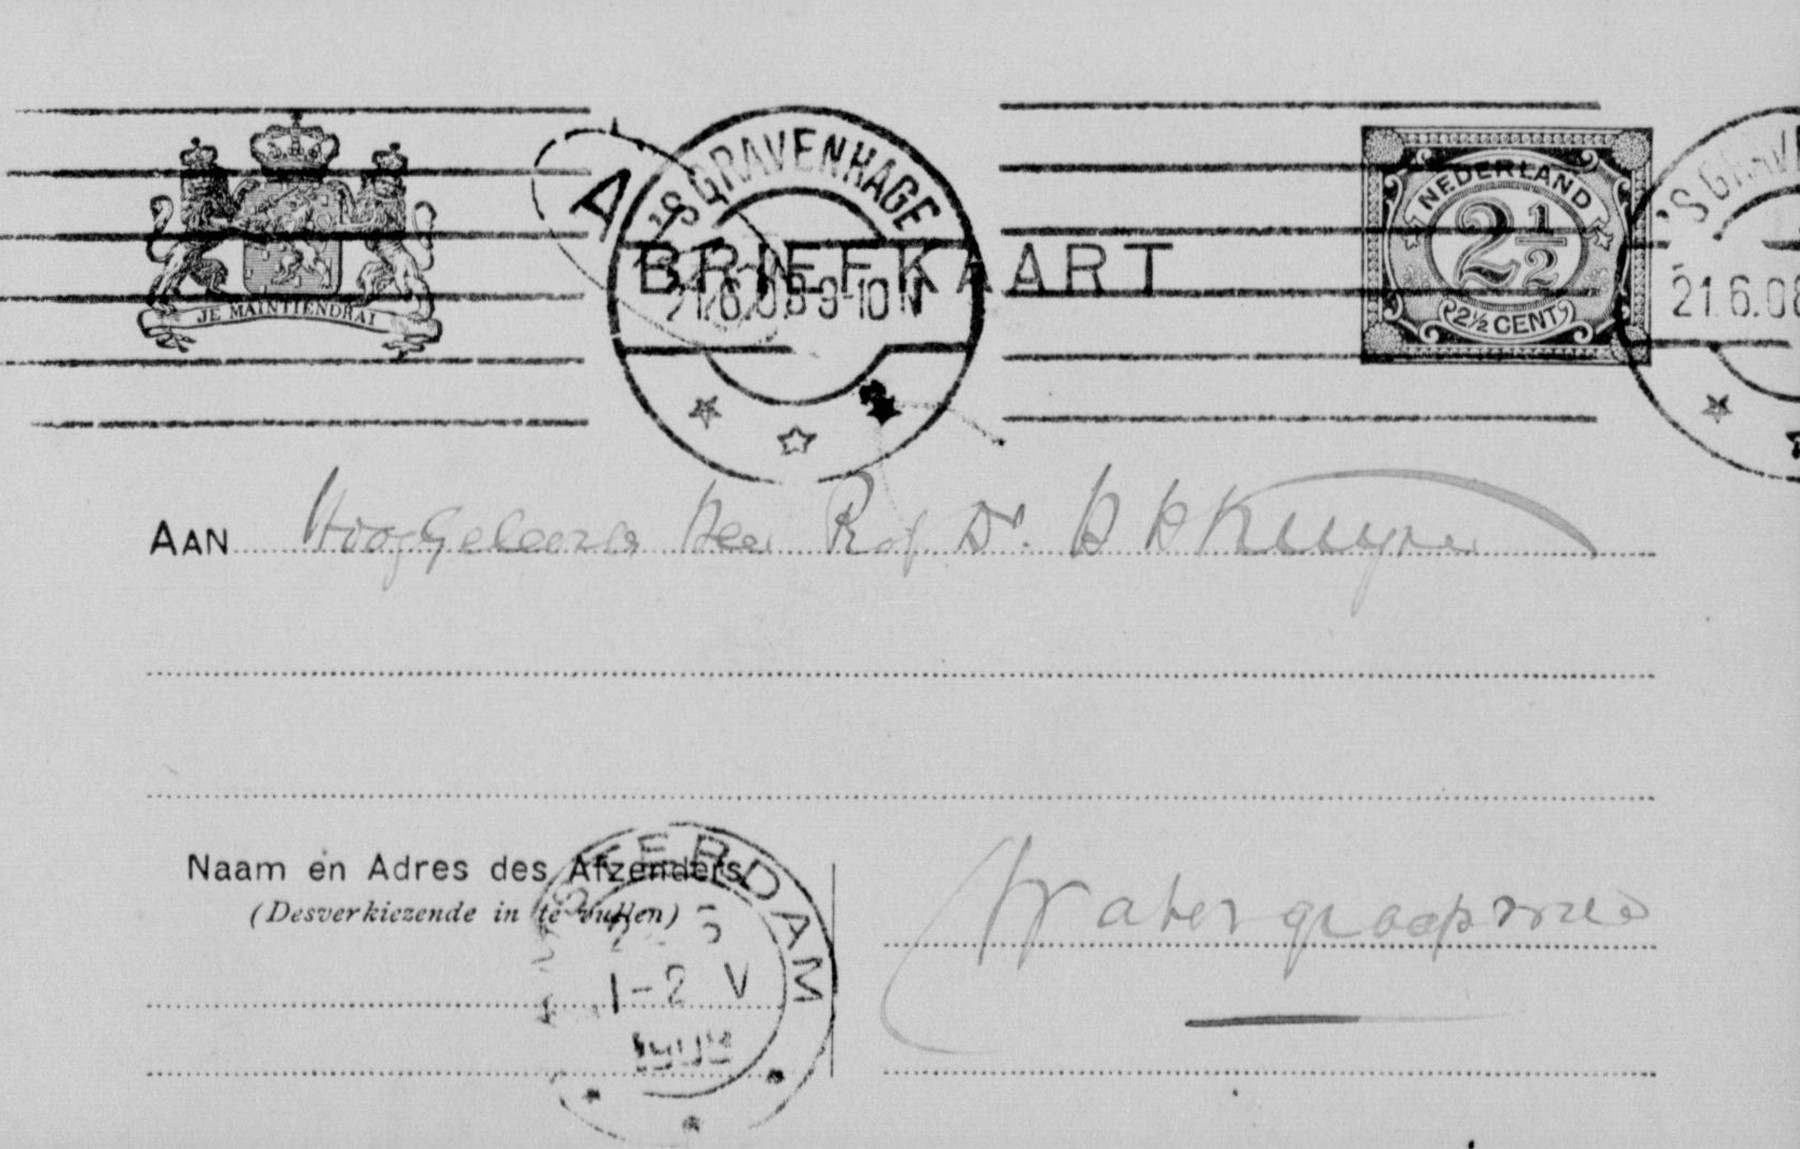 'S GRAVENHAGE
21.6.08 9-10 N
A
BRIEFKAART
JE MAINTIENDRAI
NEDERLAND
2½
2½ CENT
'S GRAV
21.6.08
AAN Hooggeleerde Heer Prof Dr. H H Kuyper
Naam en Adres des Afzenders
(Desverkiezende in te vullen)
STERDAM
1-2 V
1908
Watergraafsmeer